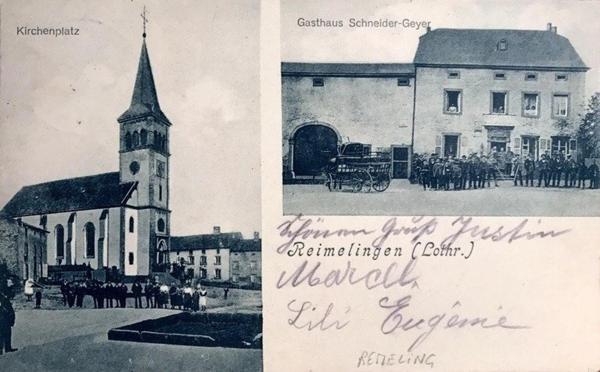 Kirchenplatz
Gasthaus Schneider-Geyer
Schönen Gruß Justin
Reimelingen (Lothr.)
Marcel.
Lili Eugénie
REMELING